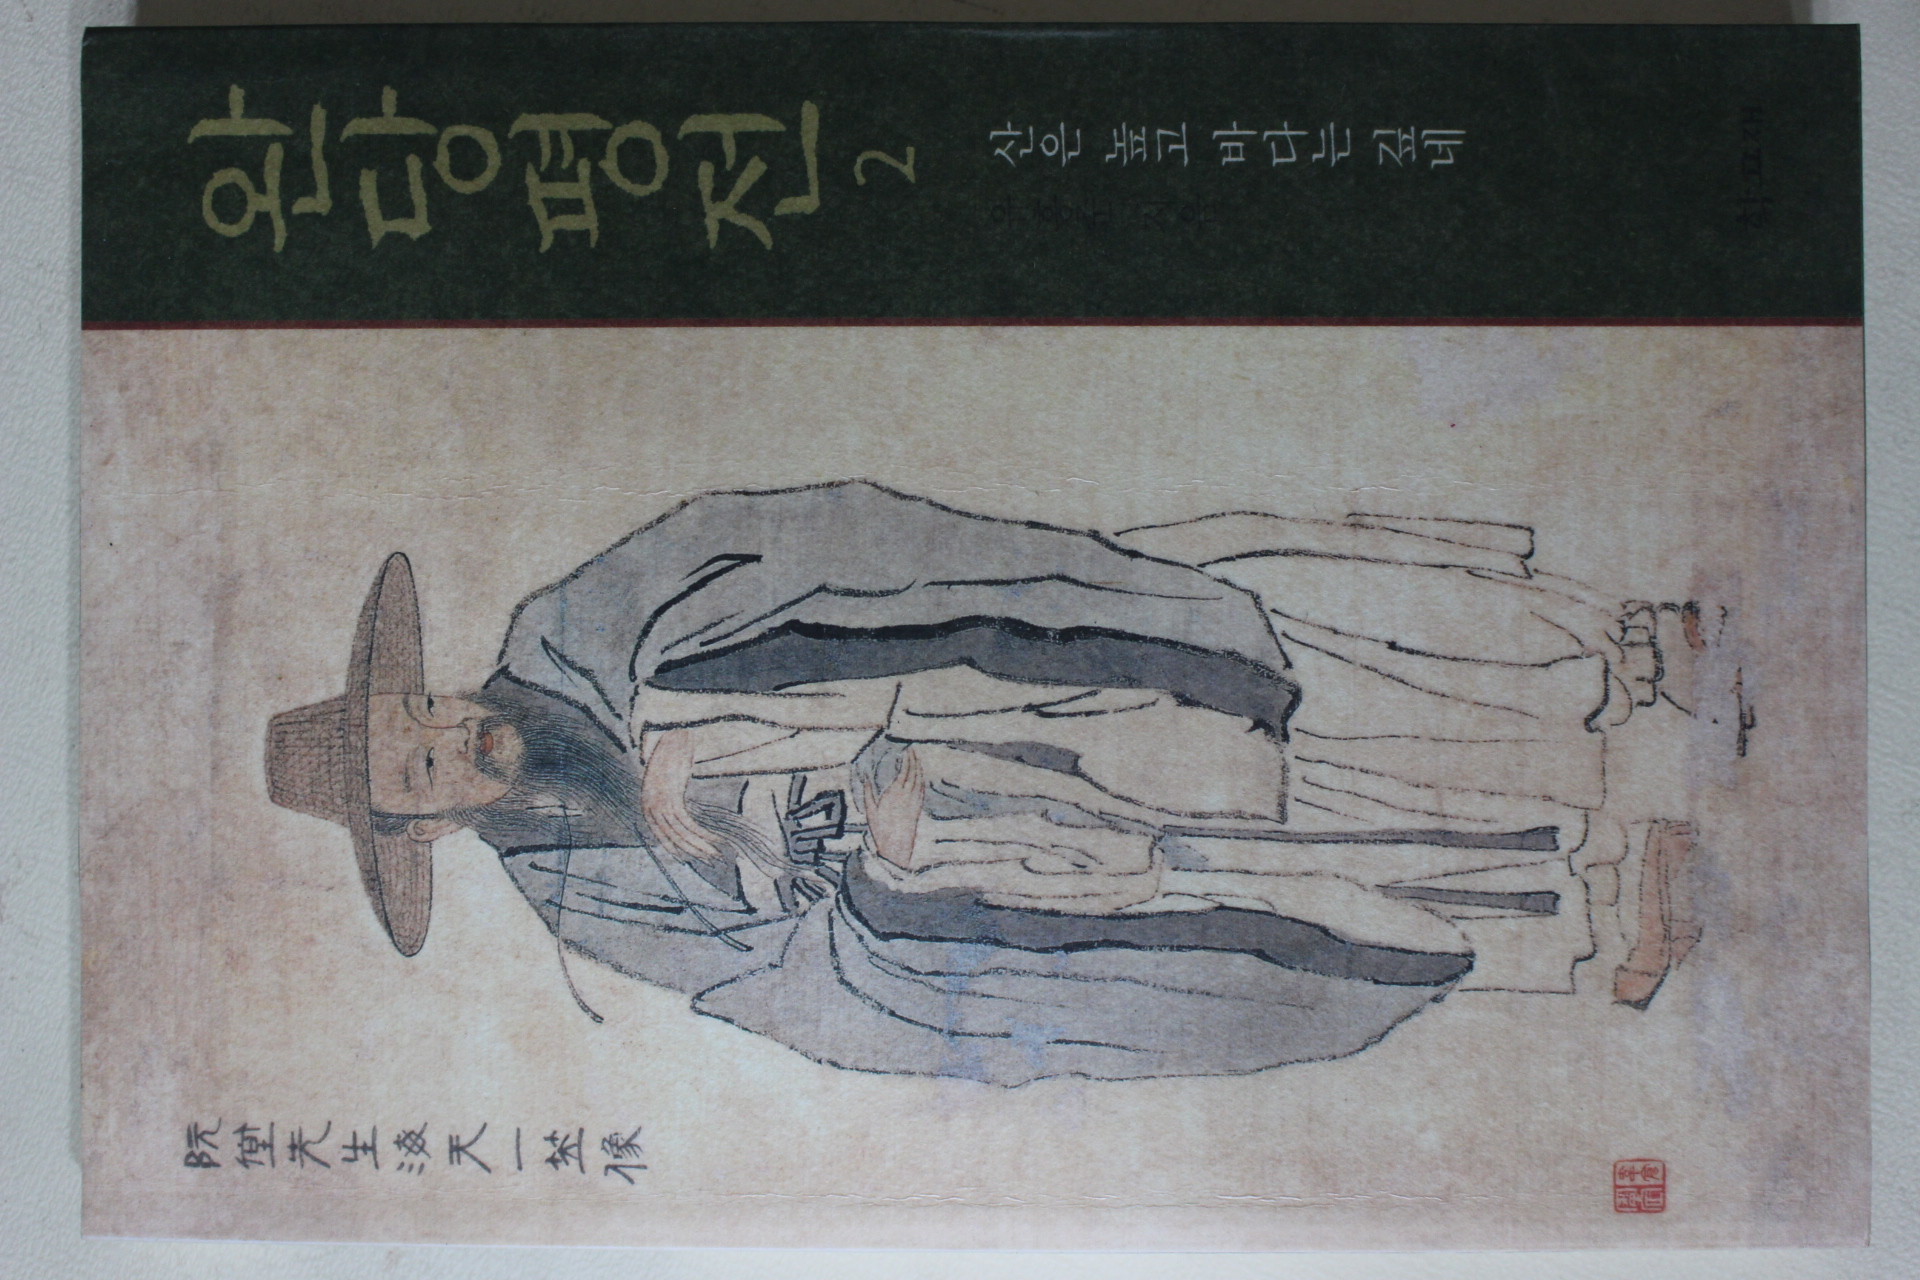 완당평전 2
산은 높고 바다는 깊네
유홍준 지음
학고재
阮堂先生海天一笠像